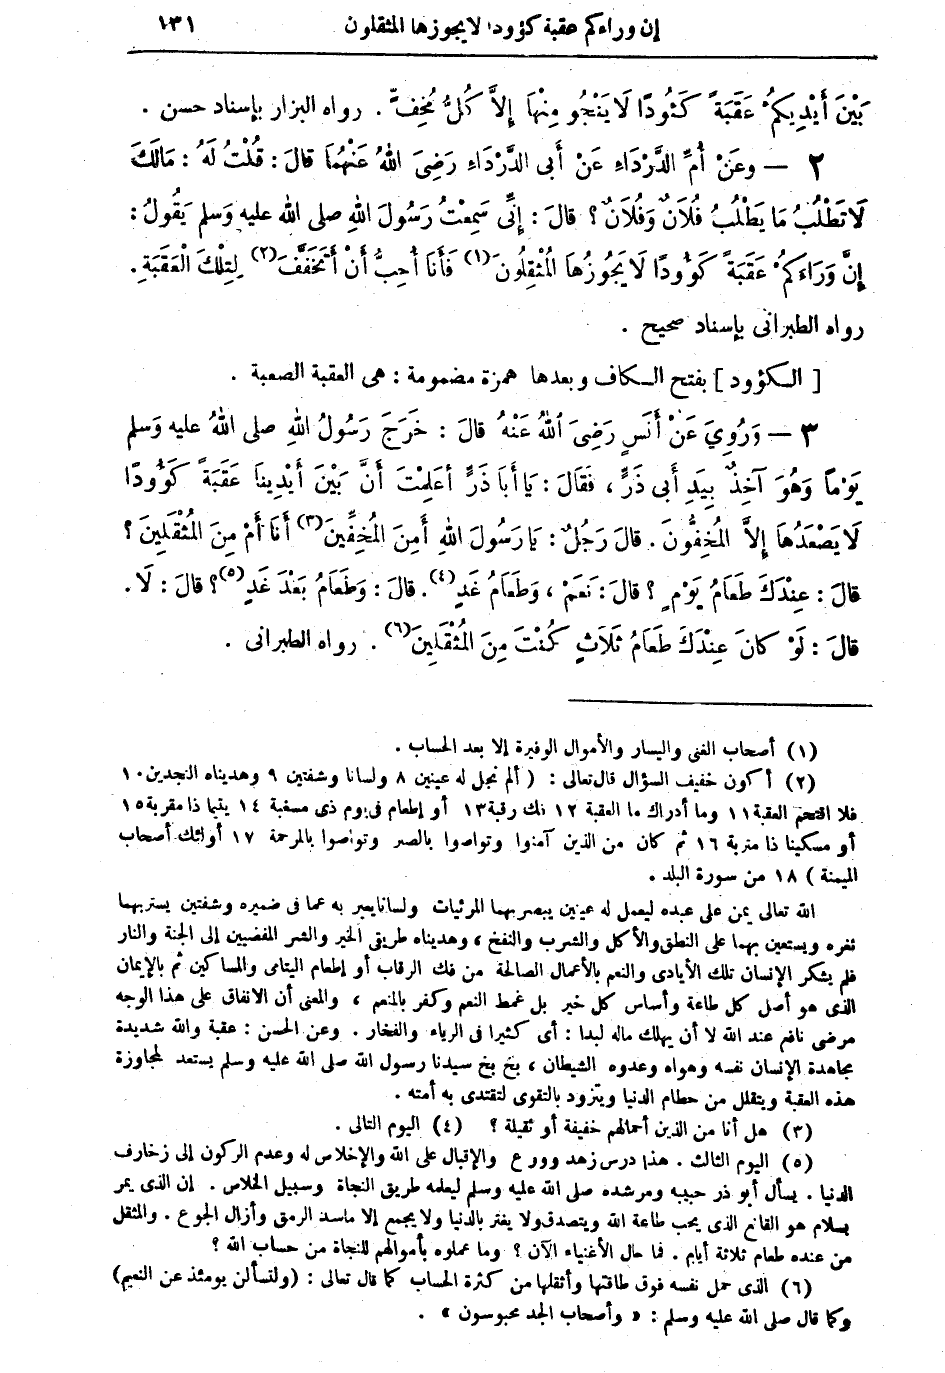 إن وراءكم عقبة كؤودا لا يجوزها المثقلون ١٣١
بَيْنَ أَيْدِيكُمْ عَقَبَةً كَئُودًا لَا يَنْجُو مِنْهَا إِلاَّ كُلُّ مُخِفٍّ . رواه البزار بإسناد حسن .
٢ — وعَنْ أُمِّ الدَّرْدَاءِ عَنْ أَبِى الدَّرْدَاءِ رَضِىَ اللهُ عَنْهُمَا قالَ : قُلْتُ لَهُ : مَالَكَ
لَا تَطْلُبُ مَا يَطْلُبُ فُلَانٌ وَفُلَانٌ ؟ قالَ : إِنِّى سَمِعْتُ رَسُولَ اللهِ صلى الله عليه وَسلم يَقُولُ :
إِنَّ وَرَاءَكُمْ عَقَبَةً كَؤُودًا لَا يَجُوزُهَا المُثْقِلُونَ (١) فَأَنَا أُحِبُّ أَنْ أَتَخَفَّفَ (٢) لِتِلْكَ الْعَقَبَةِ .
رواه الطبرانى بإسناد صحيح .
[ الكؤود ] بفتح الكاف وبعدها همزة مضمومة : هى العقبة الصعبة .
٣ — وَرُوِيَ عَنْ أَنَسٍ رَضِىَ اللهُ عَنْهُ قالَ : خَرَجَ رَسُولُ اللهِ صلى اللهُ عليه وَسلم
يَوْمًا وَهُوَ آخِذٌ بِيَدِ أَبِى ذَرٍّ ، فَقَالَ : يَا أَبَا ذَرٍّ أَعَلِمْتَ أَنَّ بَيْنَ أَيْدِينَا عَقَبَةً كَؤُودًا
لَا يَصْعَدُهَا إِلاَّ المُخِفُّونَ . قالَ رَجُلٌ : يَا رَسُولَ اللهِ أَمِنَ المُخِفِّينَ (٣) أَنَا أَمْ مِنَ المُثْقَلِينَ ؟
قالَ : عِنْدَكَ طَعَامُ يَوْمٍ ؟ قالَ : نَعَمْ ، وَطَعَامُ غَدٍ (٤) . قالَ : وَطَعَامُ بَعْدَ غَدٍ (٥) ؟ قالَ : لَا .
قالَ : لَوْ كانَ عِنْدَكَ طَعَامُ ثَلَاثٍ كُنْتَ مِنَ المُثْقَلِينَ (٦) . رواه الطبرانى .
(١) أصحاب الغنى واليسار والأموال الوفيرة إلا بعد الحساب .
(٢) أكون خفيف السؤال قال تعالى : ( ألم نجعل له عينين ٨ ولسانا وشفتين ٩ وهديناه النجدين ١٠
فلا اقتحم العقبة ١١ وما أدراك ما العقبة ١٢ فك رقبة ١٣ أو إطعام فى يوم ذى مسغبة ١٤ يتيما ذا مقربة ١٥
أو مسكينا ذا متربة ١٦ ثم كان من الذين آمنوا وتواصوا بالصبر وتواصوا بالمرحمة ١٧ أولئك أصحاب
الميمنة ) ١٨ من سورة البلد .
الله تعالى يمن على عبده ليعمل له عينين يبصر بهما المرئيات ولسانا يعبر به عما فى ضميره وشفتين يستر بهما
ثغره ويستعين بهما على النطق والأكل والشرب والنفخ ، وهديناه طريقى الخير والشر المفضيين إلى الجنة والنار
فلم يشكر الإنسان تلك الأيادى والنعم بالأعمال الصالحة من فك الرقاب أو إطعام اليتامى والمساكين ثم بالإيمان
الذى هو أصل كل طاعة وأساس كل خير بل غمط النعم وكفر بالمنعم ، والمعنى أن الانفاق على هذا الوجه
مرضى نافع عند الله لا أن يهلك ماله لبدا : أى كثيرا فى الرياء والفخار . وعن الحسن : عقبة والله شديدة
مجاهدة الإنسان نفسه وهواه وعدوه الشيطان ، بخ بخ سيدنا رسول الله صلى الله عليه وسلم يستعد لمجاوزة
هذه العقبة ويتقلل من حطام الدنيا ويتزود بالتقوى لتقتدى به أمته .
(٣) هل أنا من الذين أحمالهم خفيفة أو ثقيلة ؟ (٤) اليوم التالى .
(٥) اليوم الثالث . هذا درس زهد وورع والإقبال على الله والإخلاص له وعدم الركون إلى زخارف
الدنيا . يسأل أبو ذر حبيبه ومرشده صلى الله عليه وسلم ليعلمه طريق النجاة وسبيل الخلاص . إن الذى يمر
بسلام هو القانع الذى يحب طاعة الله ويتصدق ولا يغتر بالدنيا ولا يجمع إلا ماسد الرمق وأزال الجوع . والمثقل
من عنده طعام ثلاثة أيام . فما حال الأغنياء الآن ؟ وما عملوه بأموالهم للنجاة من حساب الله ؟
(٦) الذى حمل نفسه فوق طاقتها وأثقلها من كثرة الحساب كما قال تعالى : (ولتسألن يومئذ عن النعيم)
وكما قال صلى الله عليه وسلم : « وأصحاب الجد محبوسون » .